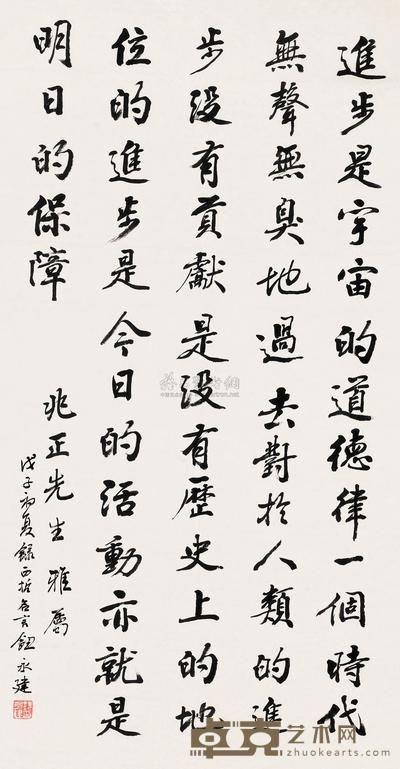 進步是宇宙的道德律一個時代
無聲無臭地過去對於人類的進
步沒有貢獻是沒有歷史上的地
位的進步是今日的活動亦就是
明日的保障
兆正先生雅屬
戊子初夏錄西哲名言鈕永建
卓克艺术网
zhuokearts.com